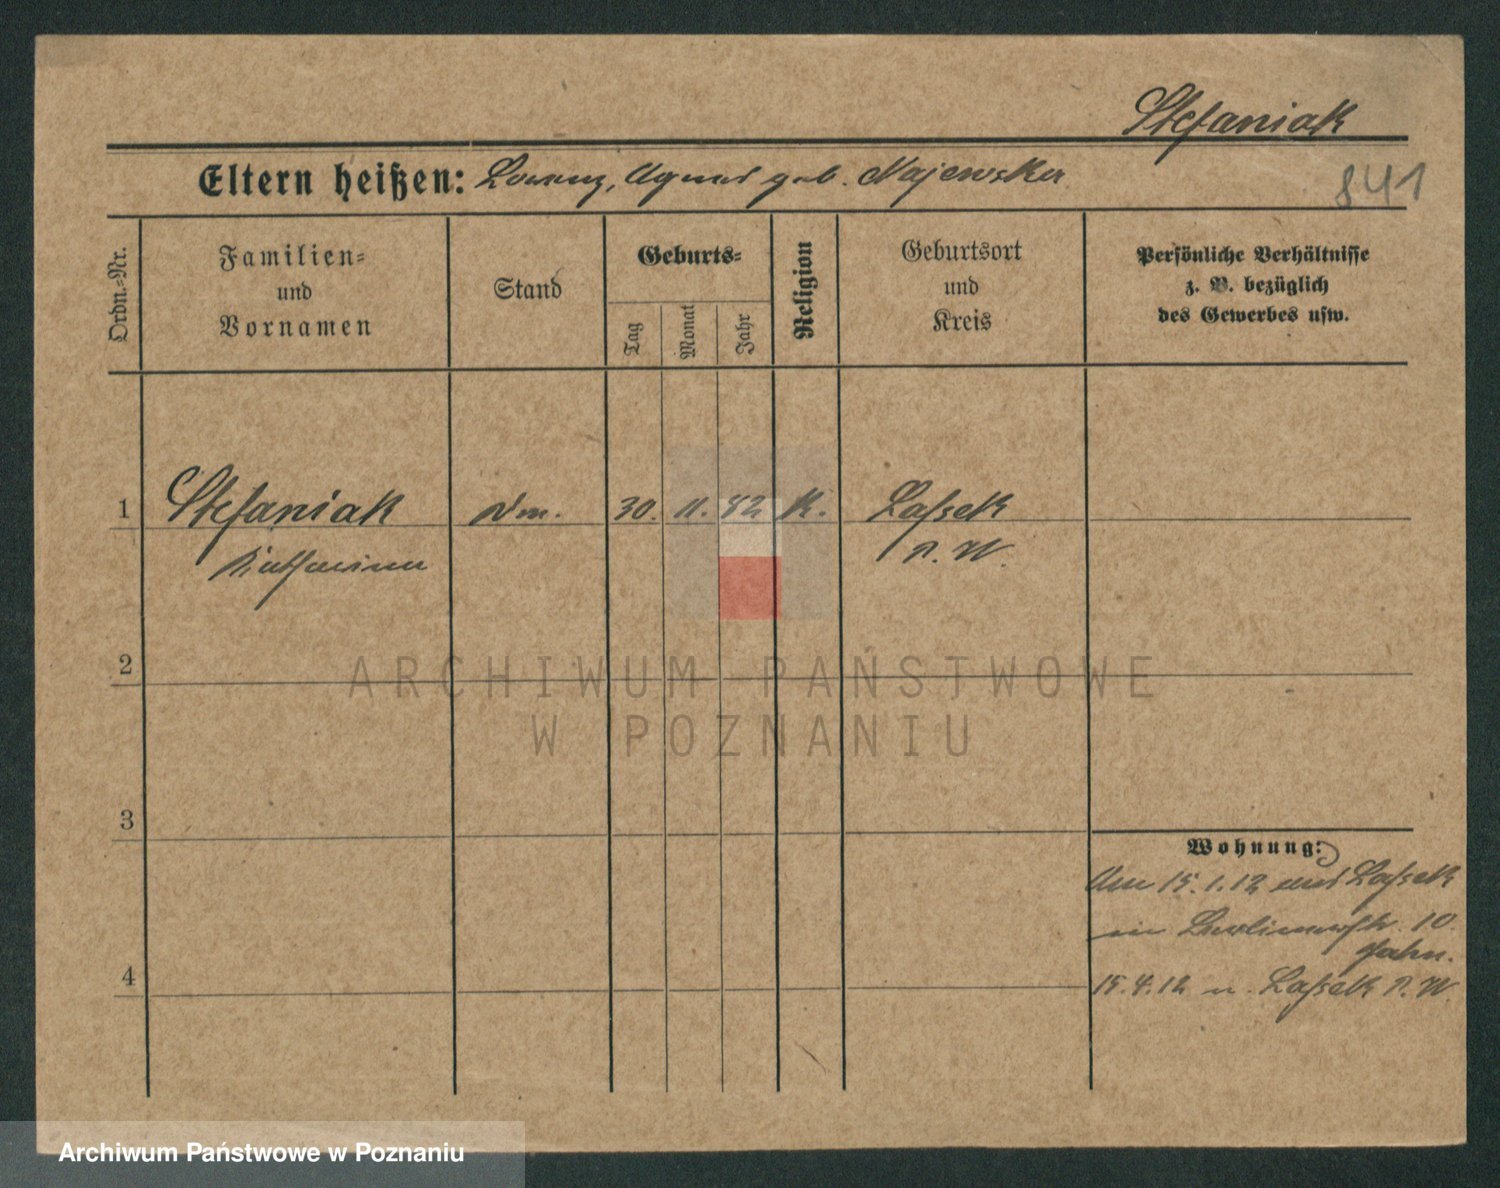 Stefaniak
Eltern heißen: Lorenz, Agnes geb. Majewska
841
Ordn.-Nr.
Familien-
und
Vornamen
Stand
Geburts-
Tag
Monat
Jahr
Religion
Geburtsort
und
Kreis
Persönliche Verhältnisse
z. B. bezüglich
des Gewerbes usw.
1 Stefaniak 30. 11. 82 K. Lassek
Katharina P. W.
2
3
4
Wohnung:
15.1.12 aus Lassek
in Berlinerstr. 10
15.4.12 n. Lassek P. W.
ARCHIWUM PAŃSTWOWE
W POZNANIU
Archiwum Państwowe w Poznaniu